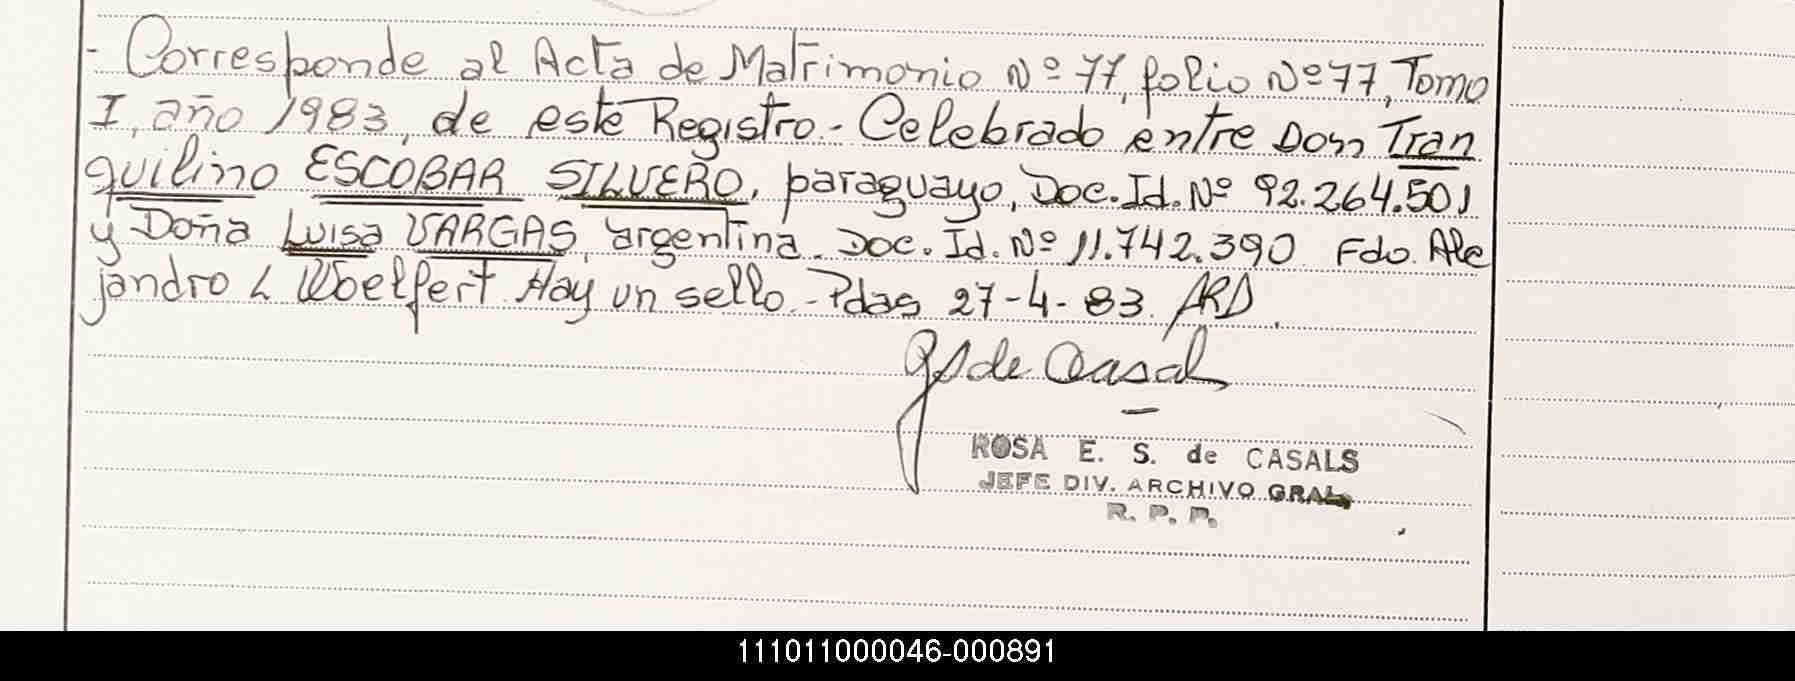 - Corresponde al Acta de Matrimonio Nº 77, folio Nº 77, Tomo
I, año 1983, de este Registro.- Celebrado entre Don Tran
quilino ESCOBAR SILVERO, paraguayo, Doc. Id. Nº 92.264.501
y Doña Luisa VARGAS, argentina. Doc. Id. Nº 11.742.390 Fdo. Ale
jandro L Woelfert Hay un sello.- Pdas 27-4-83. ARD.
de Casals
ROSA E. S. de CASALS
JEFE DIV. ARCHIVO GRAL,
R. P. P.
111011000046-000891